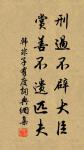 刑過不辟大臣
賞善不遺匹夫
韩非子有度詞典網集